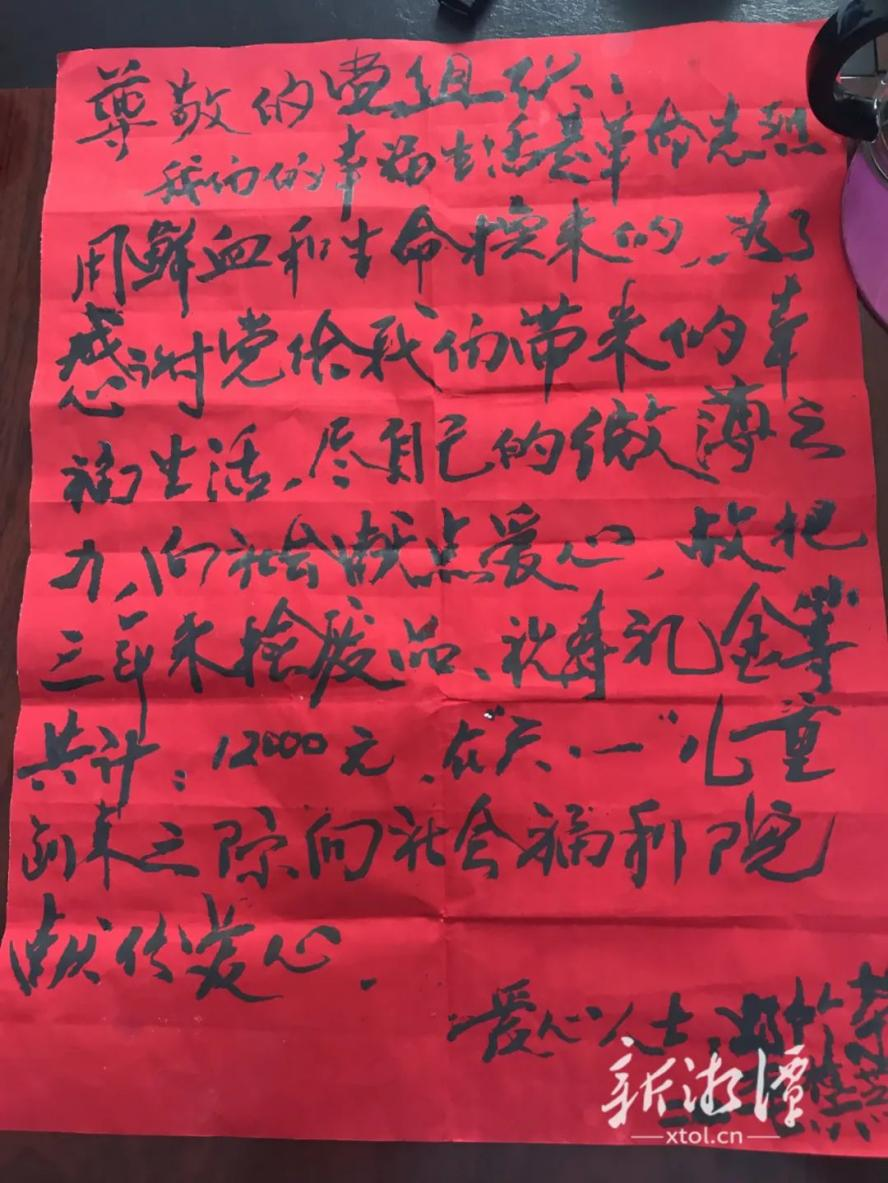 尊敬的党组织：
我们的幸福生活是革命先烈
用鲜血和生命换来的，为了
感谢党给我们带来的幸
福生活，尽自己的微薄之
力，向社会献点爱心，故把
三年来捡废品、祝寿礼金等
共计：12000元，在"六·一"儿童
到来之际向社会福利院
献份爱心．
爱心人士：
新湘潭
xtol.cn